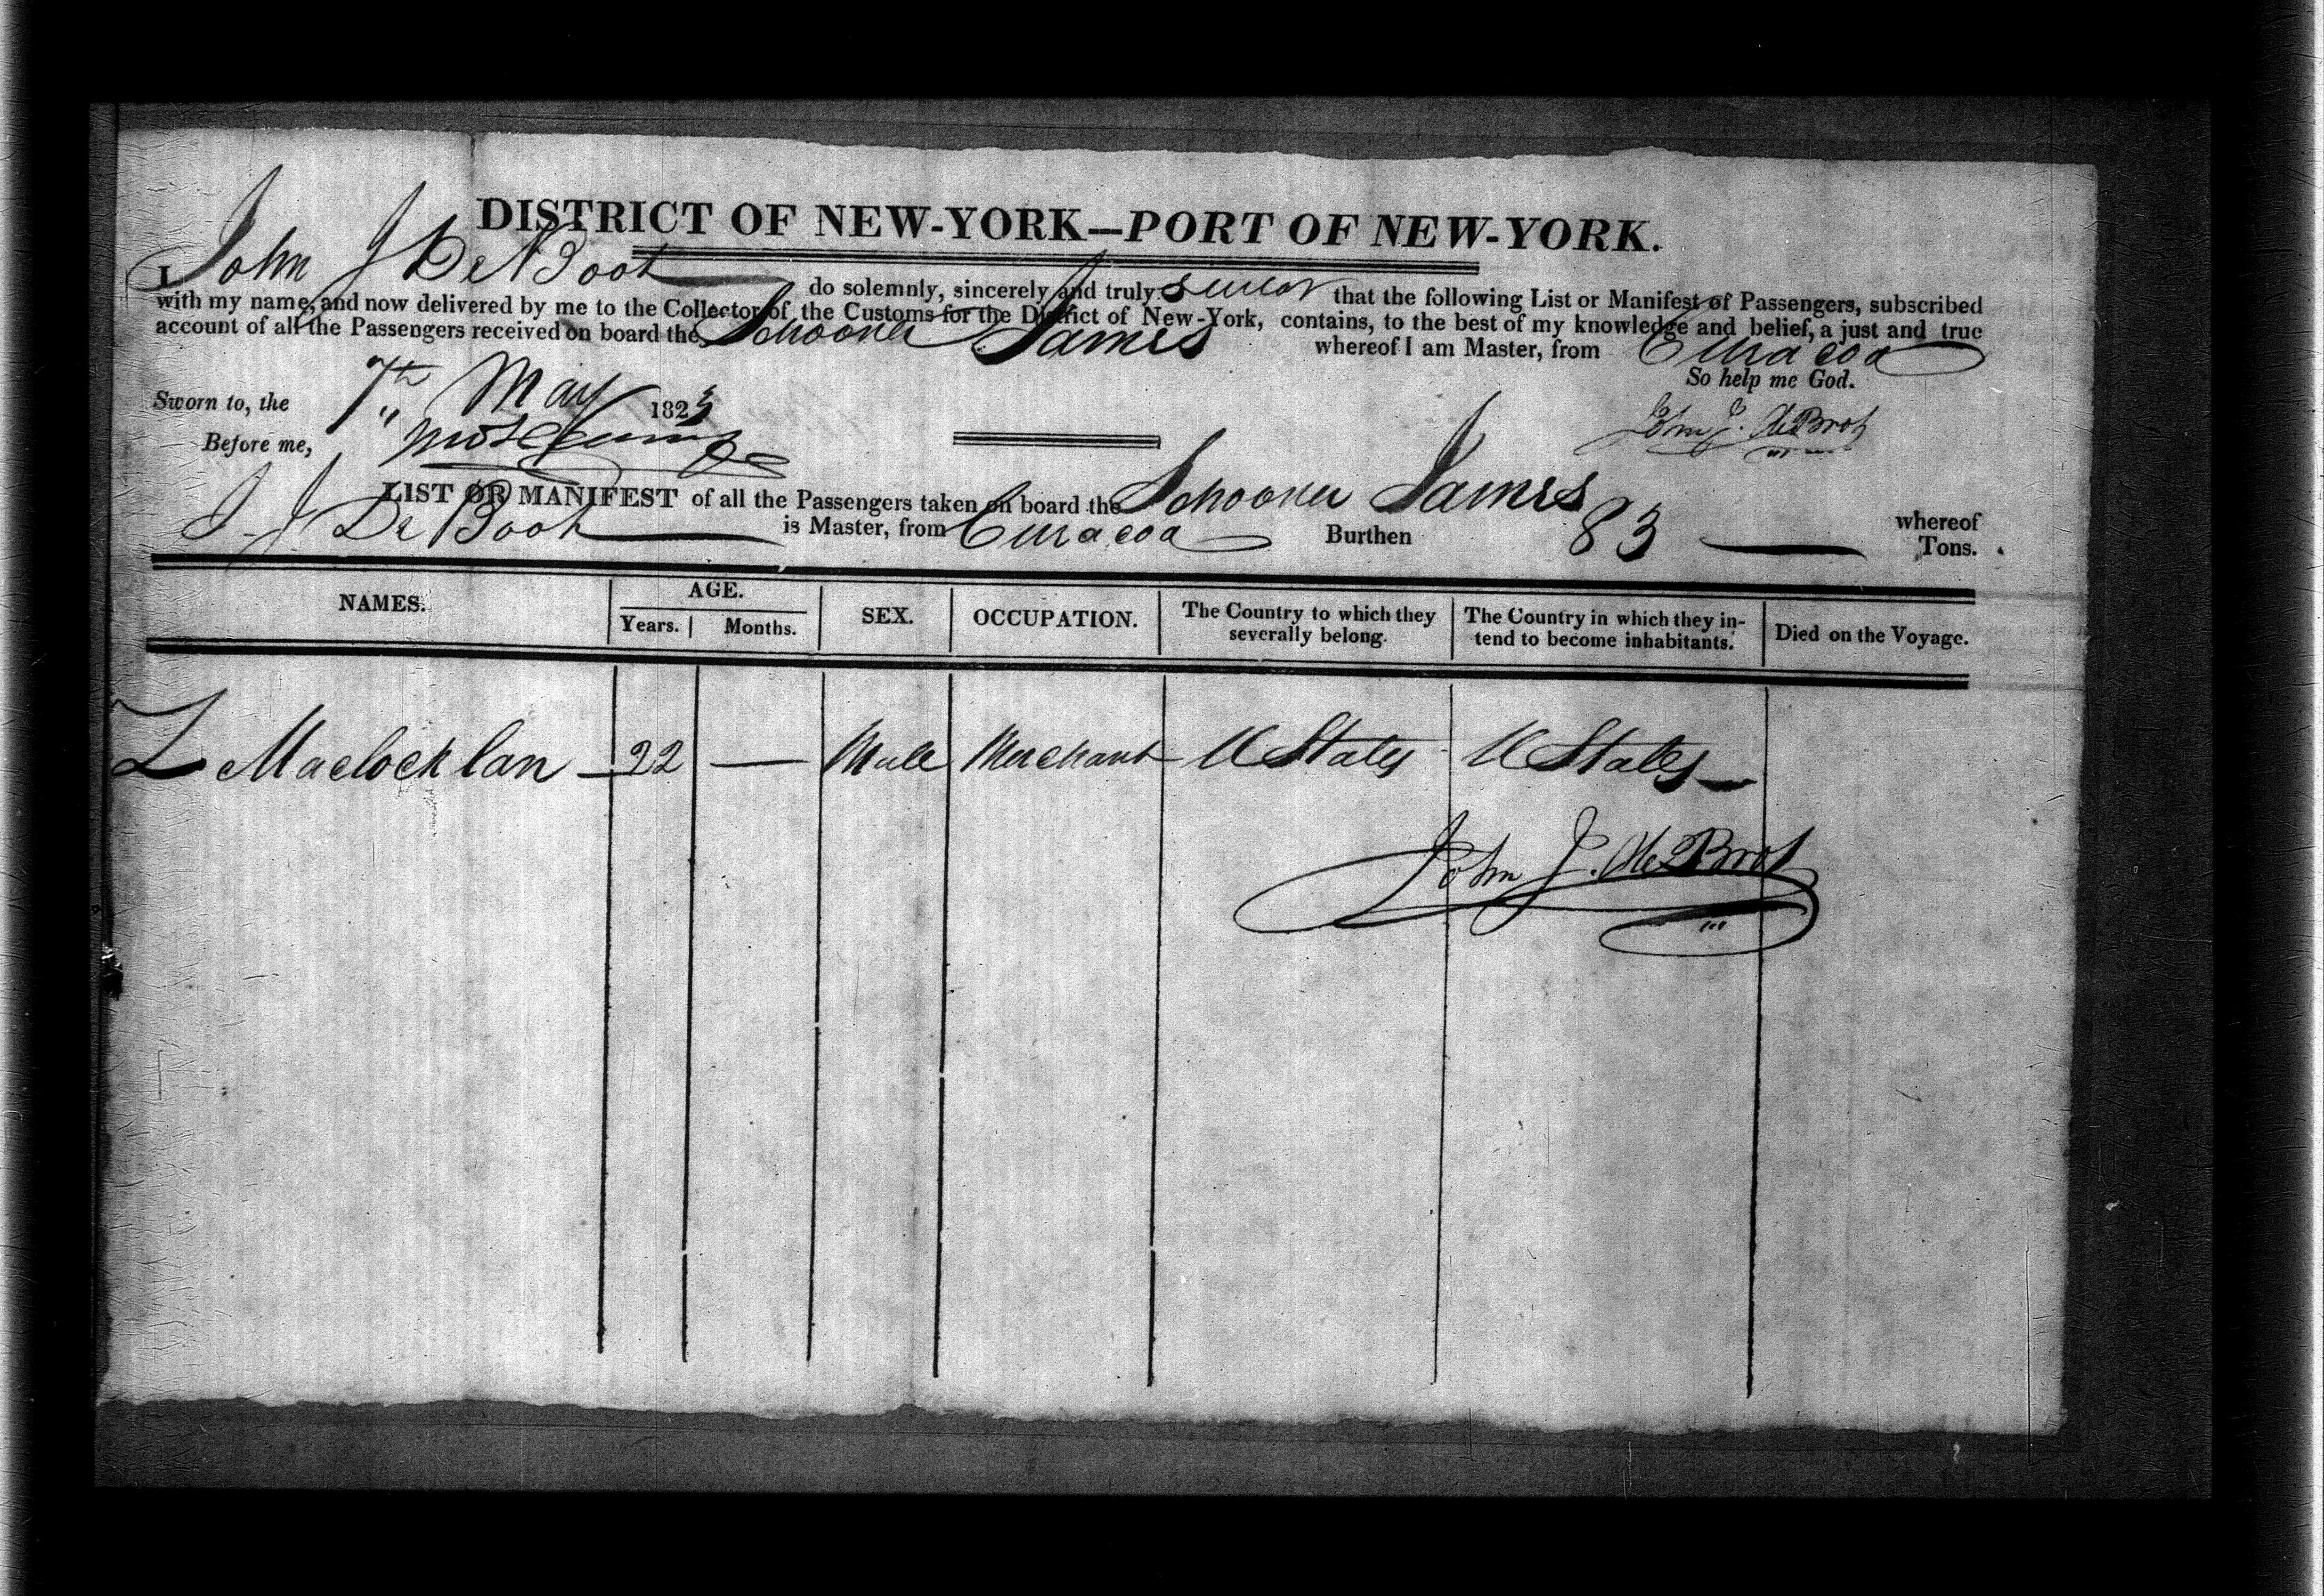 DISTRICT OF NEW-YORK—PORT OF NEW-YORK.
I John J De Boot do solemnly, sincerely and truly swear that the following List or Manifest of Passengers, subscribed
with my name, and now delivered by me to the Collector of the Customs for the District of New-York, contains, to the best of my knowledge and belief, a just and true
account of all the Passengers received on board the Schooner James whereof I am Master, from Curacoa
So help me God.
Sworn to, the 7th May 1823
John J. De Brot
Before me,
LIST OR MANIFEST of all the Passengers taken on board the Schooner James whereof
J. J De Boot is Master, from Curacoa Burthen 83 Tons.
NAMES. AGE. SEX. OCCUPATION. The Country to which they severally belong. The Country in which they in-tend to become inhabitants. Died on the Voyage.
Years. Months.
Z Maclocklan 22 — Male Merchant U States U States
John J. De Brot